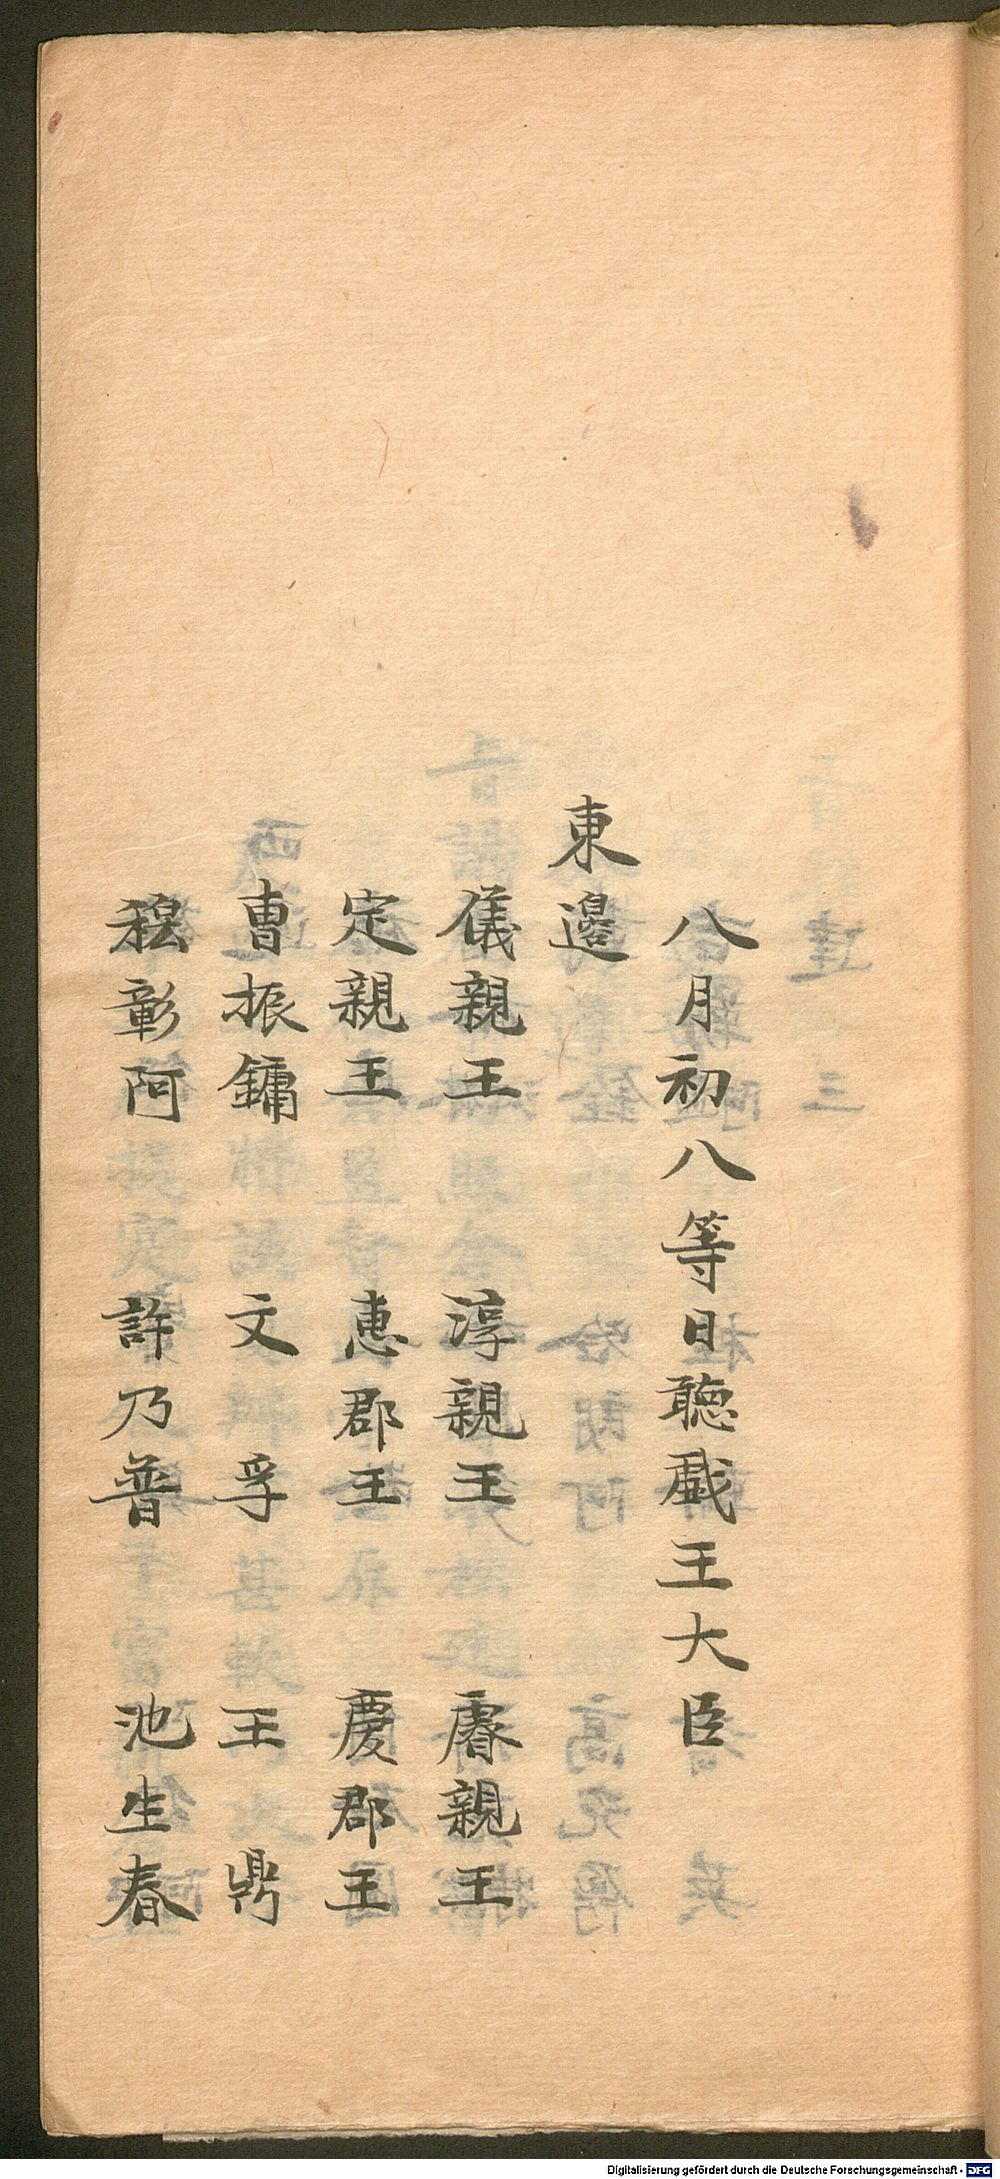 八月初八等日聽戲王大臣
東邊
儀親王 淳親王 睿親王
定親王 惠郡王 慶郡王
曹振鏞 文孚 王鼎
穆彰阿 許乃普 池生春
Digitalisierung gefördert durch die Deutsche Forschungsgemeinschaft - DFG